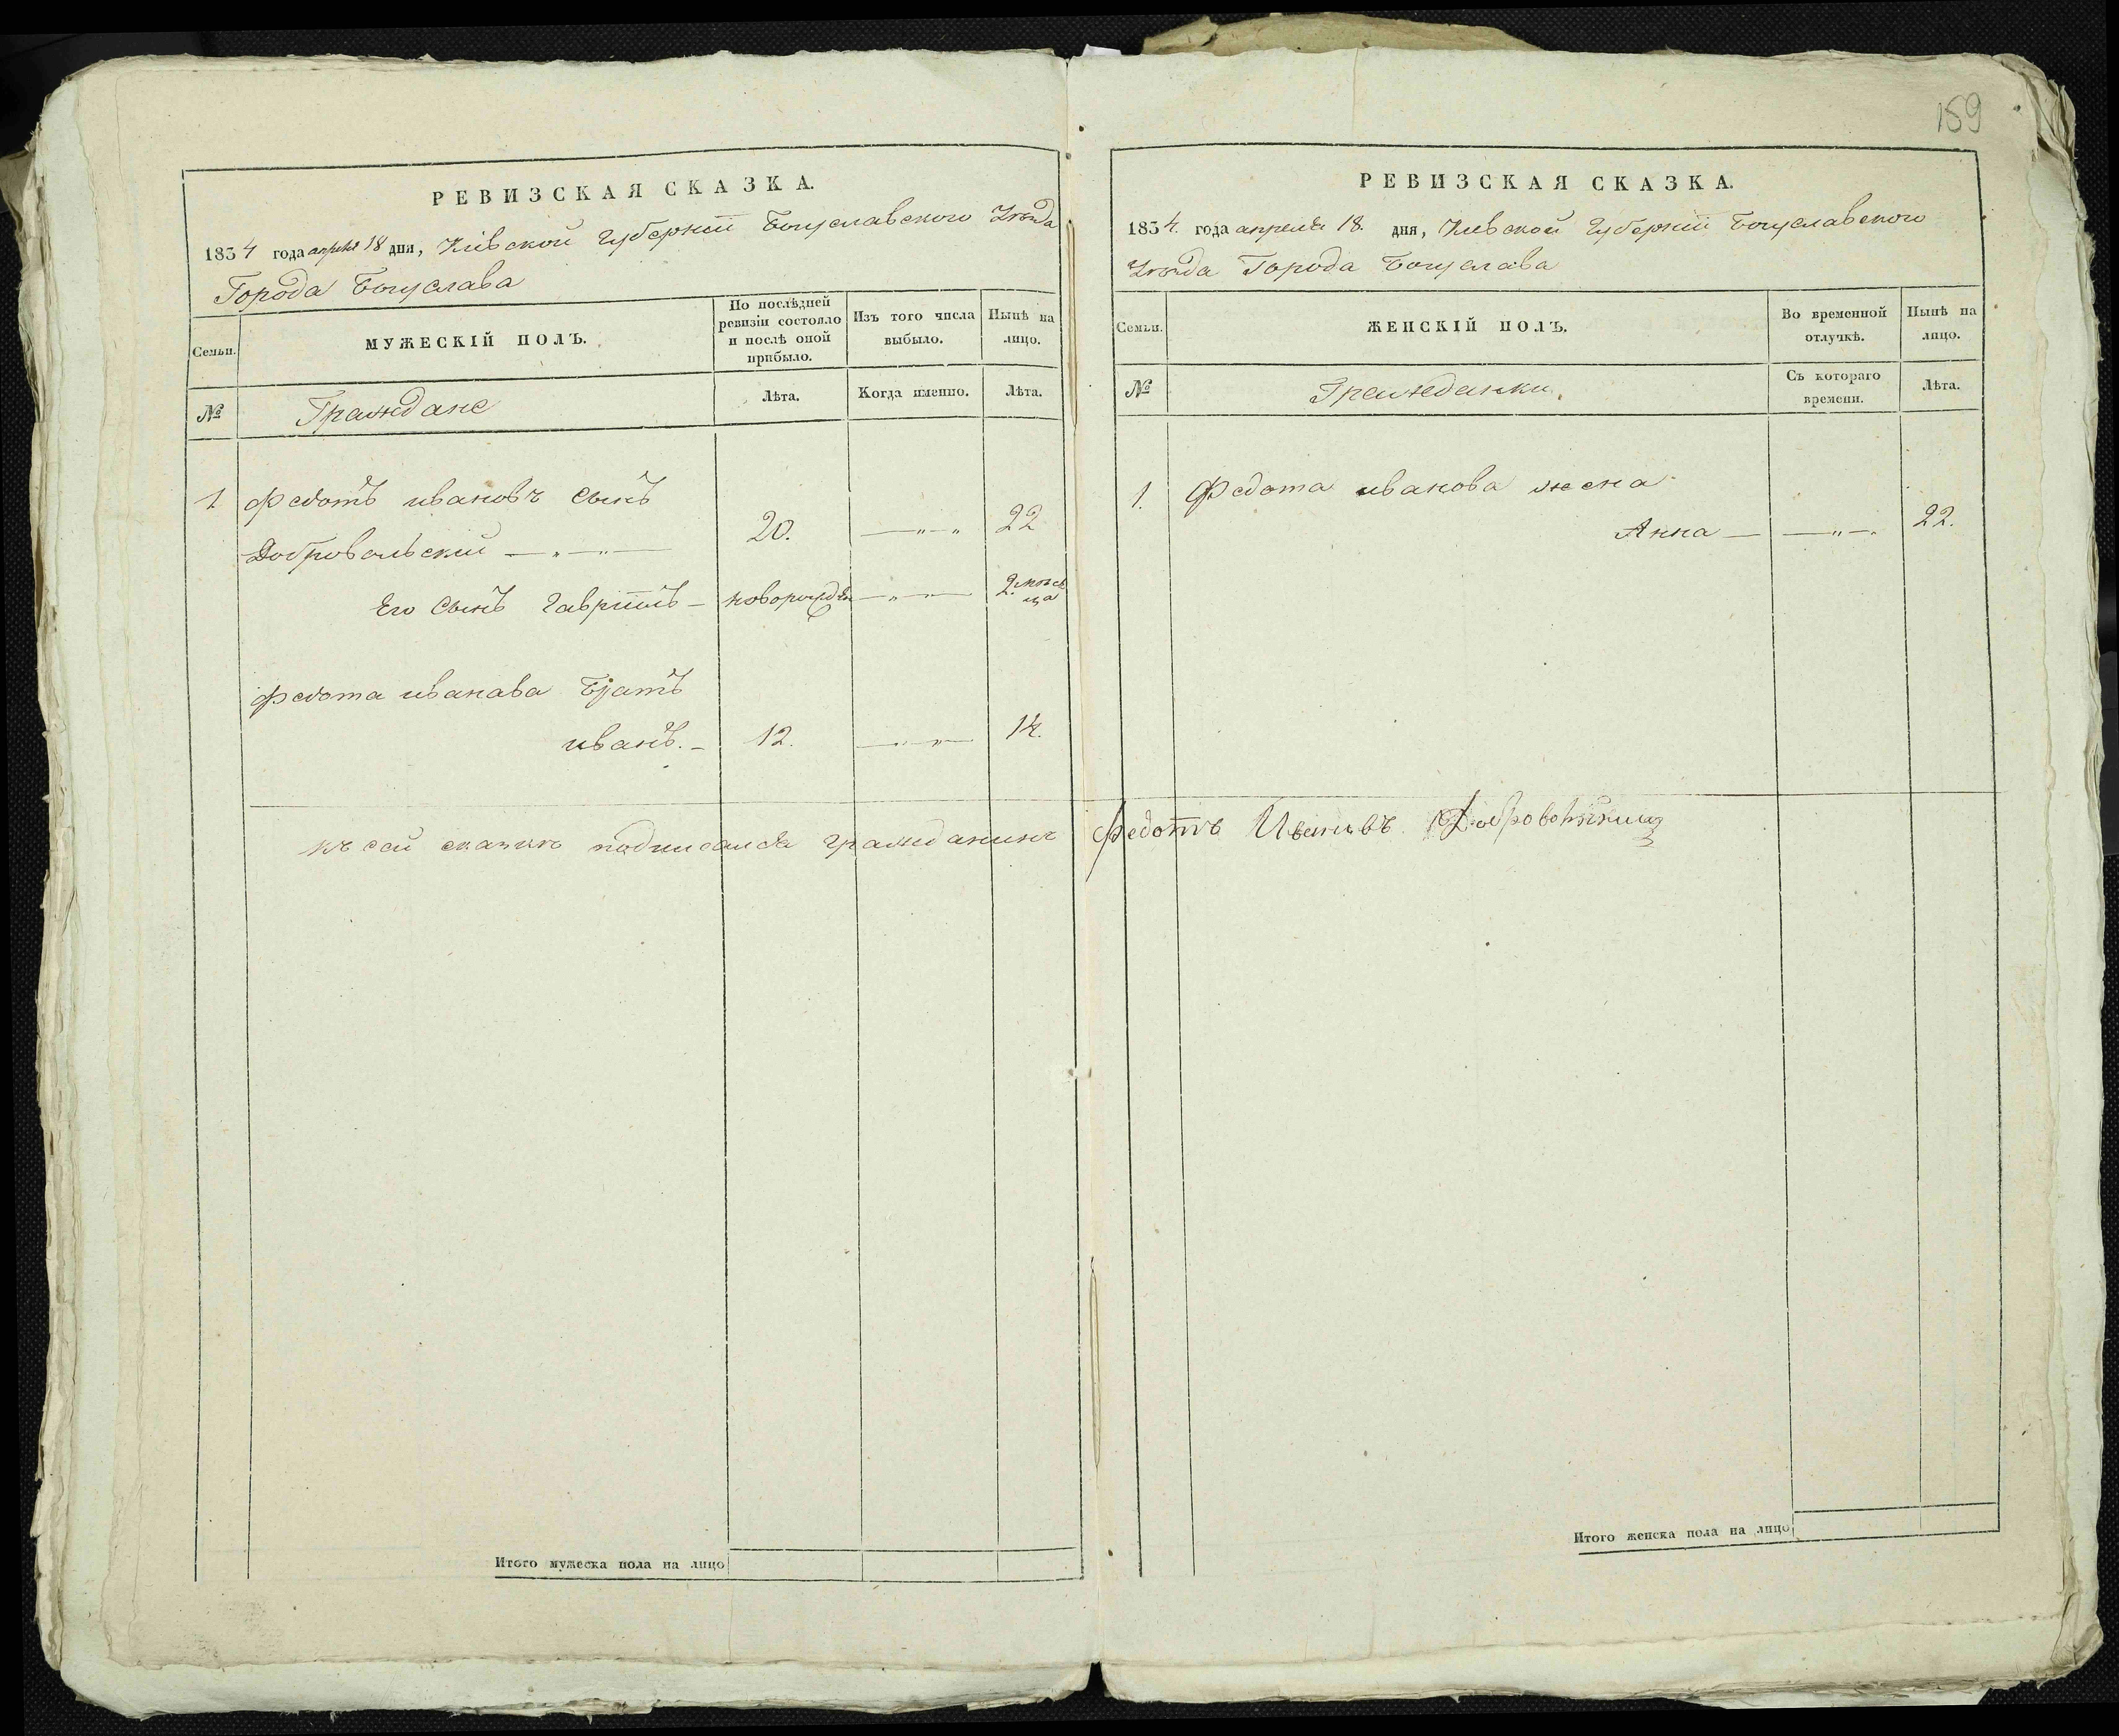 159
РЕВИЗСКАЯ СКАЗКА.
1834 года апреля 18 дня, Кіевской Губерніи Богуславского Уѣзда
Города Богуслава
Семьи.
МУЖЕСКІЙ ПОЛЪ.
По послѣдней ревизіи состояло и послѣ оной прибыло.
Изъ того числа выбыло.
Нынѣ на лицо.
№
Граждане
Лѣта.
Когда именно.
Лѣта.
1 Федотъ ивановъ сынъ
Добровольскій — „ — „ — 20. — „ — „ 22
Его сынъ Гавріилъ — новорожден — „ — „ — 2. мѣся
ца
Федота иванава Братъ
иванъ. — 12. — „ — „ — 14.
къ сей сказкѣ подписался гражданинъ Федотъ Ивановъ Добровольский
Итого мужеска пола на лицо
РЕВИЗСКАЯ СКАЗКА.
1834. года апреля 18. дня, Киевской Губерніи Богуславского
Уѣзда Города Богуслава
Семьи.
ЖЕНСКІЙ ПОЛЪ.
Во временной отлучкѣ.
Нынѣ на лицо.
№
Гражданки.
Съ котораго времени.
Лѣта.
1. Федота иванова жена
Анна — — „ — „ 22.
Итого женска пола на лицо